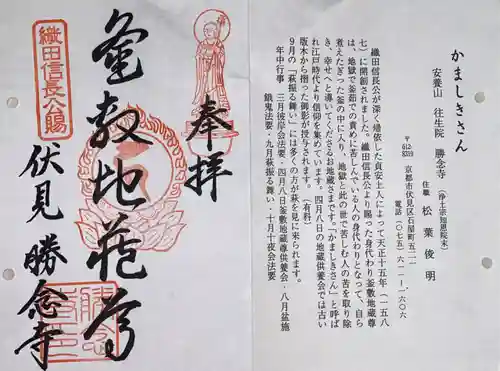 かましきさん
安養山 往生院 勝念寺 (浄土宗知恩院末)
住職 松葉俊明
〒612-8359 京都市伏見区石屋町五一一
電話(〇七五)六一一ー一六〇六
織田信長公が深く帰依した貞安上人によって天正十五年(一五八
七)に開創されました。織田信長公より賜った身代わり釜敷地蔵尊
は、地獄で釜茹での責めに苦しんでいる人の身代わりとなって、自ら
煮えたぎった釜の中に入り、地獄と此の世で苦しむ人の苦を取り除
き、幸せへと導いてくださるお地蔵さまです。「かましきさん」と呼ば
れ江戸時代より信仰を集めています。四月八日の地蔵供養会では古い
版木から摺った御影が授与されます。(有料)
9月の「萩振る舞い」には多くの方が萩を見に来られます。
年中行事 三月彼岸会法要・四月八日釜敷地蔵尊供養会・八月盆施
餓鬼法要・九月萩振る舞い・十月十夜会法要
奉拝
釜敷地蔵尊
織田信長公賜
伏見 勝念寺